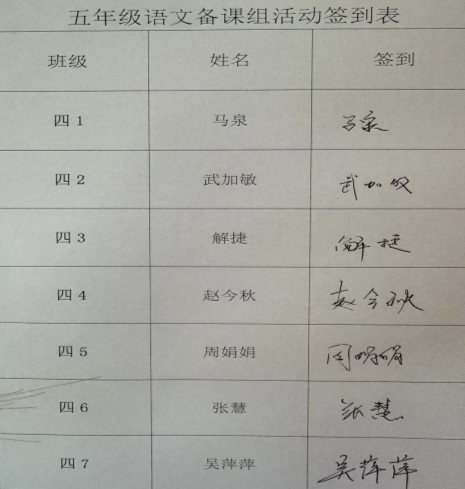 五年级语文备课组活动签到表
班级 姓名 签到
四1 马泉 马泉
四2 武加敏 武加敏
四3 解捷 解捷
四4 赵今秋 赵今秋
四5 周娟娟 周娟娟
四6 张慧 张慧
四7 吴萍萍 吴萍萍